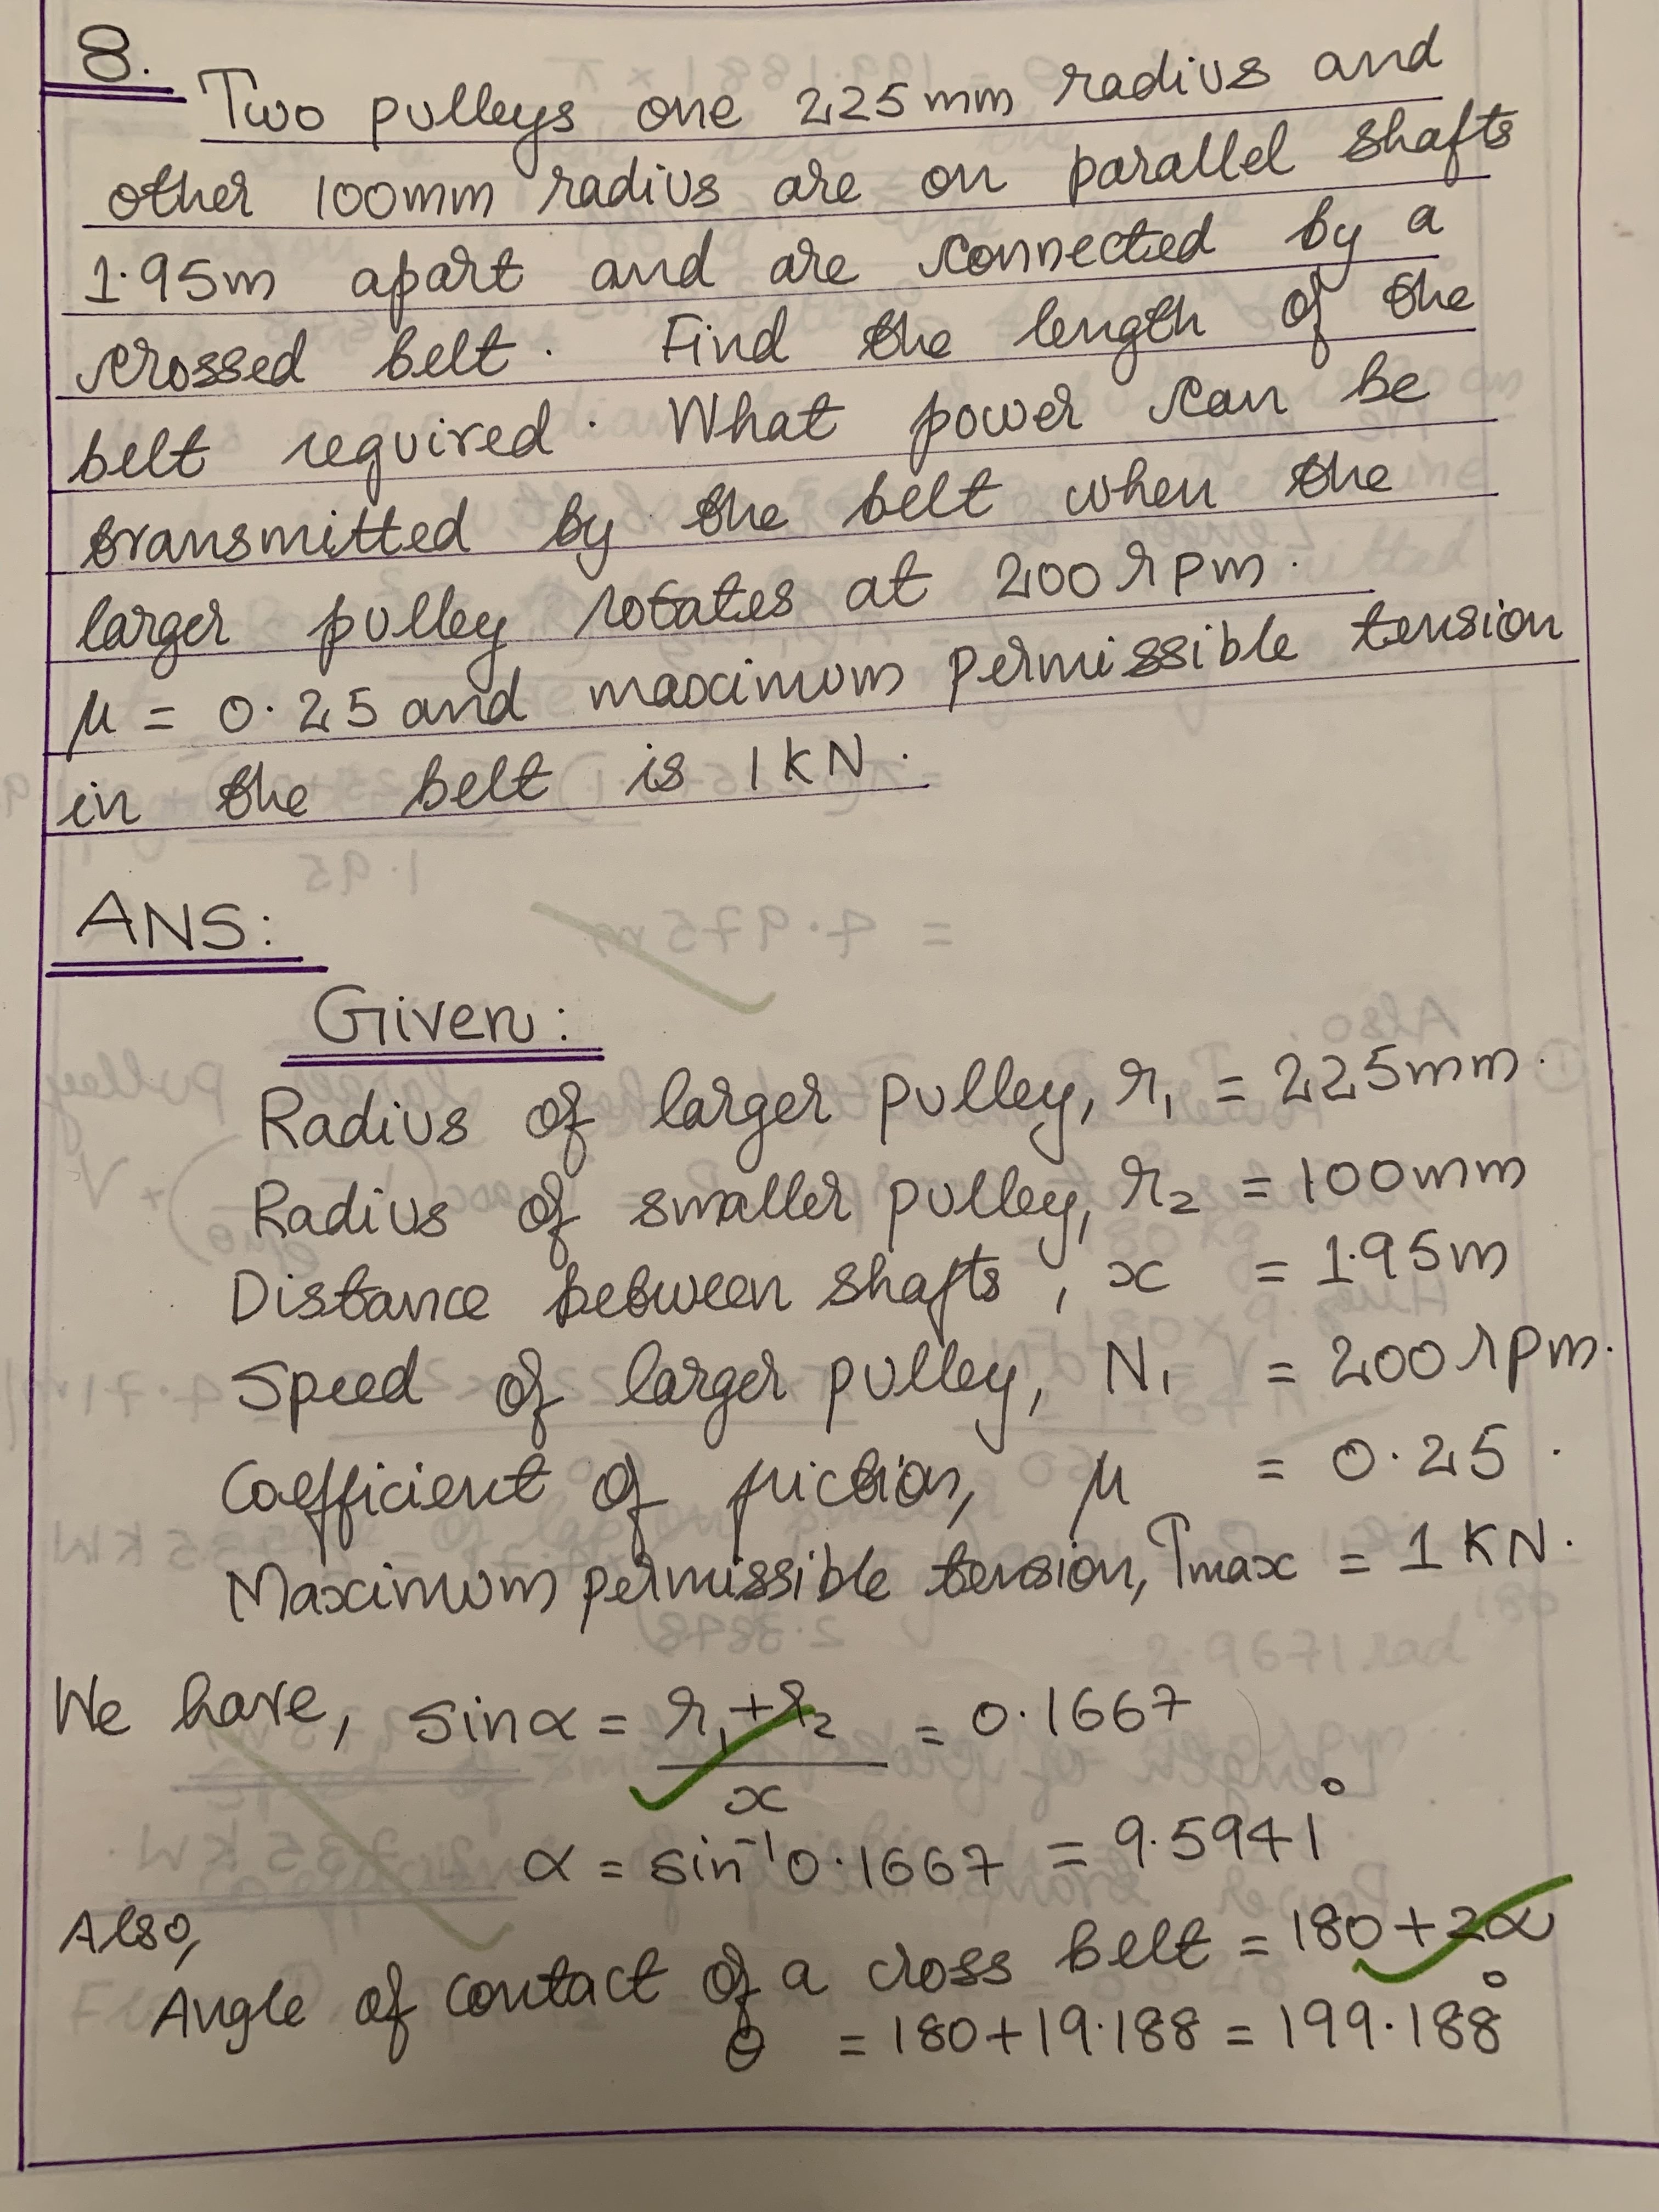 8.
Two pulleys one 225mm radius and
other 100mm radius are on parallel shafts
1.95m apart and are connected by a
crossed belt. Find the length of the
belt required. What power can be
transmitted by the belt when the
larger pulley rotates at 200 rpm.
μ = 0.25 and maximum permissible tension
in the belt is 1kN.
ANS:
Given:
Radius of larger pulley, r₁ = 225mm.
Radius of smaller pulley, r₂ = 100mm
Distance between shafts, x = 1.95m
Speed of larger pulley, N₁ = 200 rpm.
Coefficient of friction, μ = 0.25.
Maximum permissible tension, Tmax = 1 KN.
We have, sinα = r₁+r₂ = 0.1667
x
α = sin⁻¹0.1667 = 9.5941°
Also,
Angle of contact of a cross belt = 180+2α
θ = 180+19.188 = 199.188°